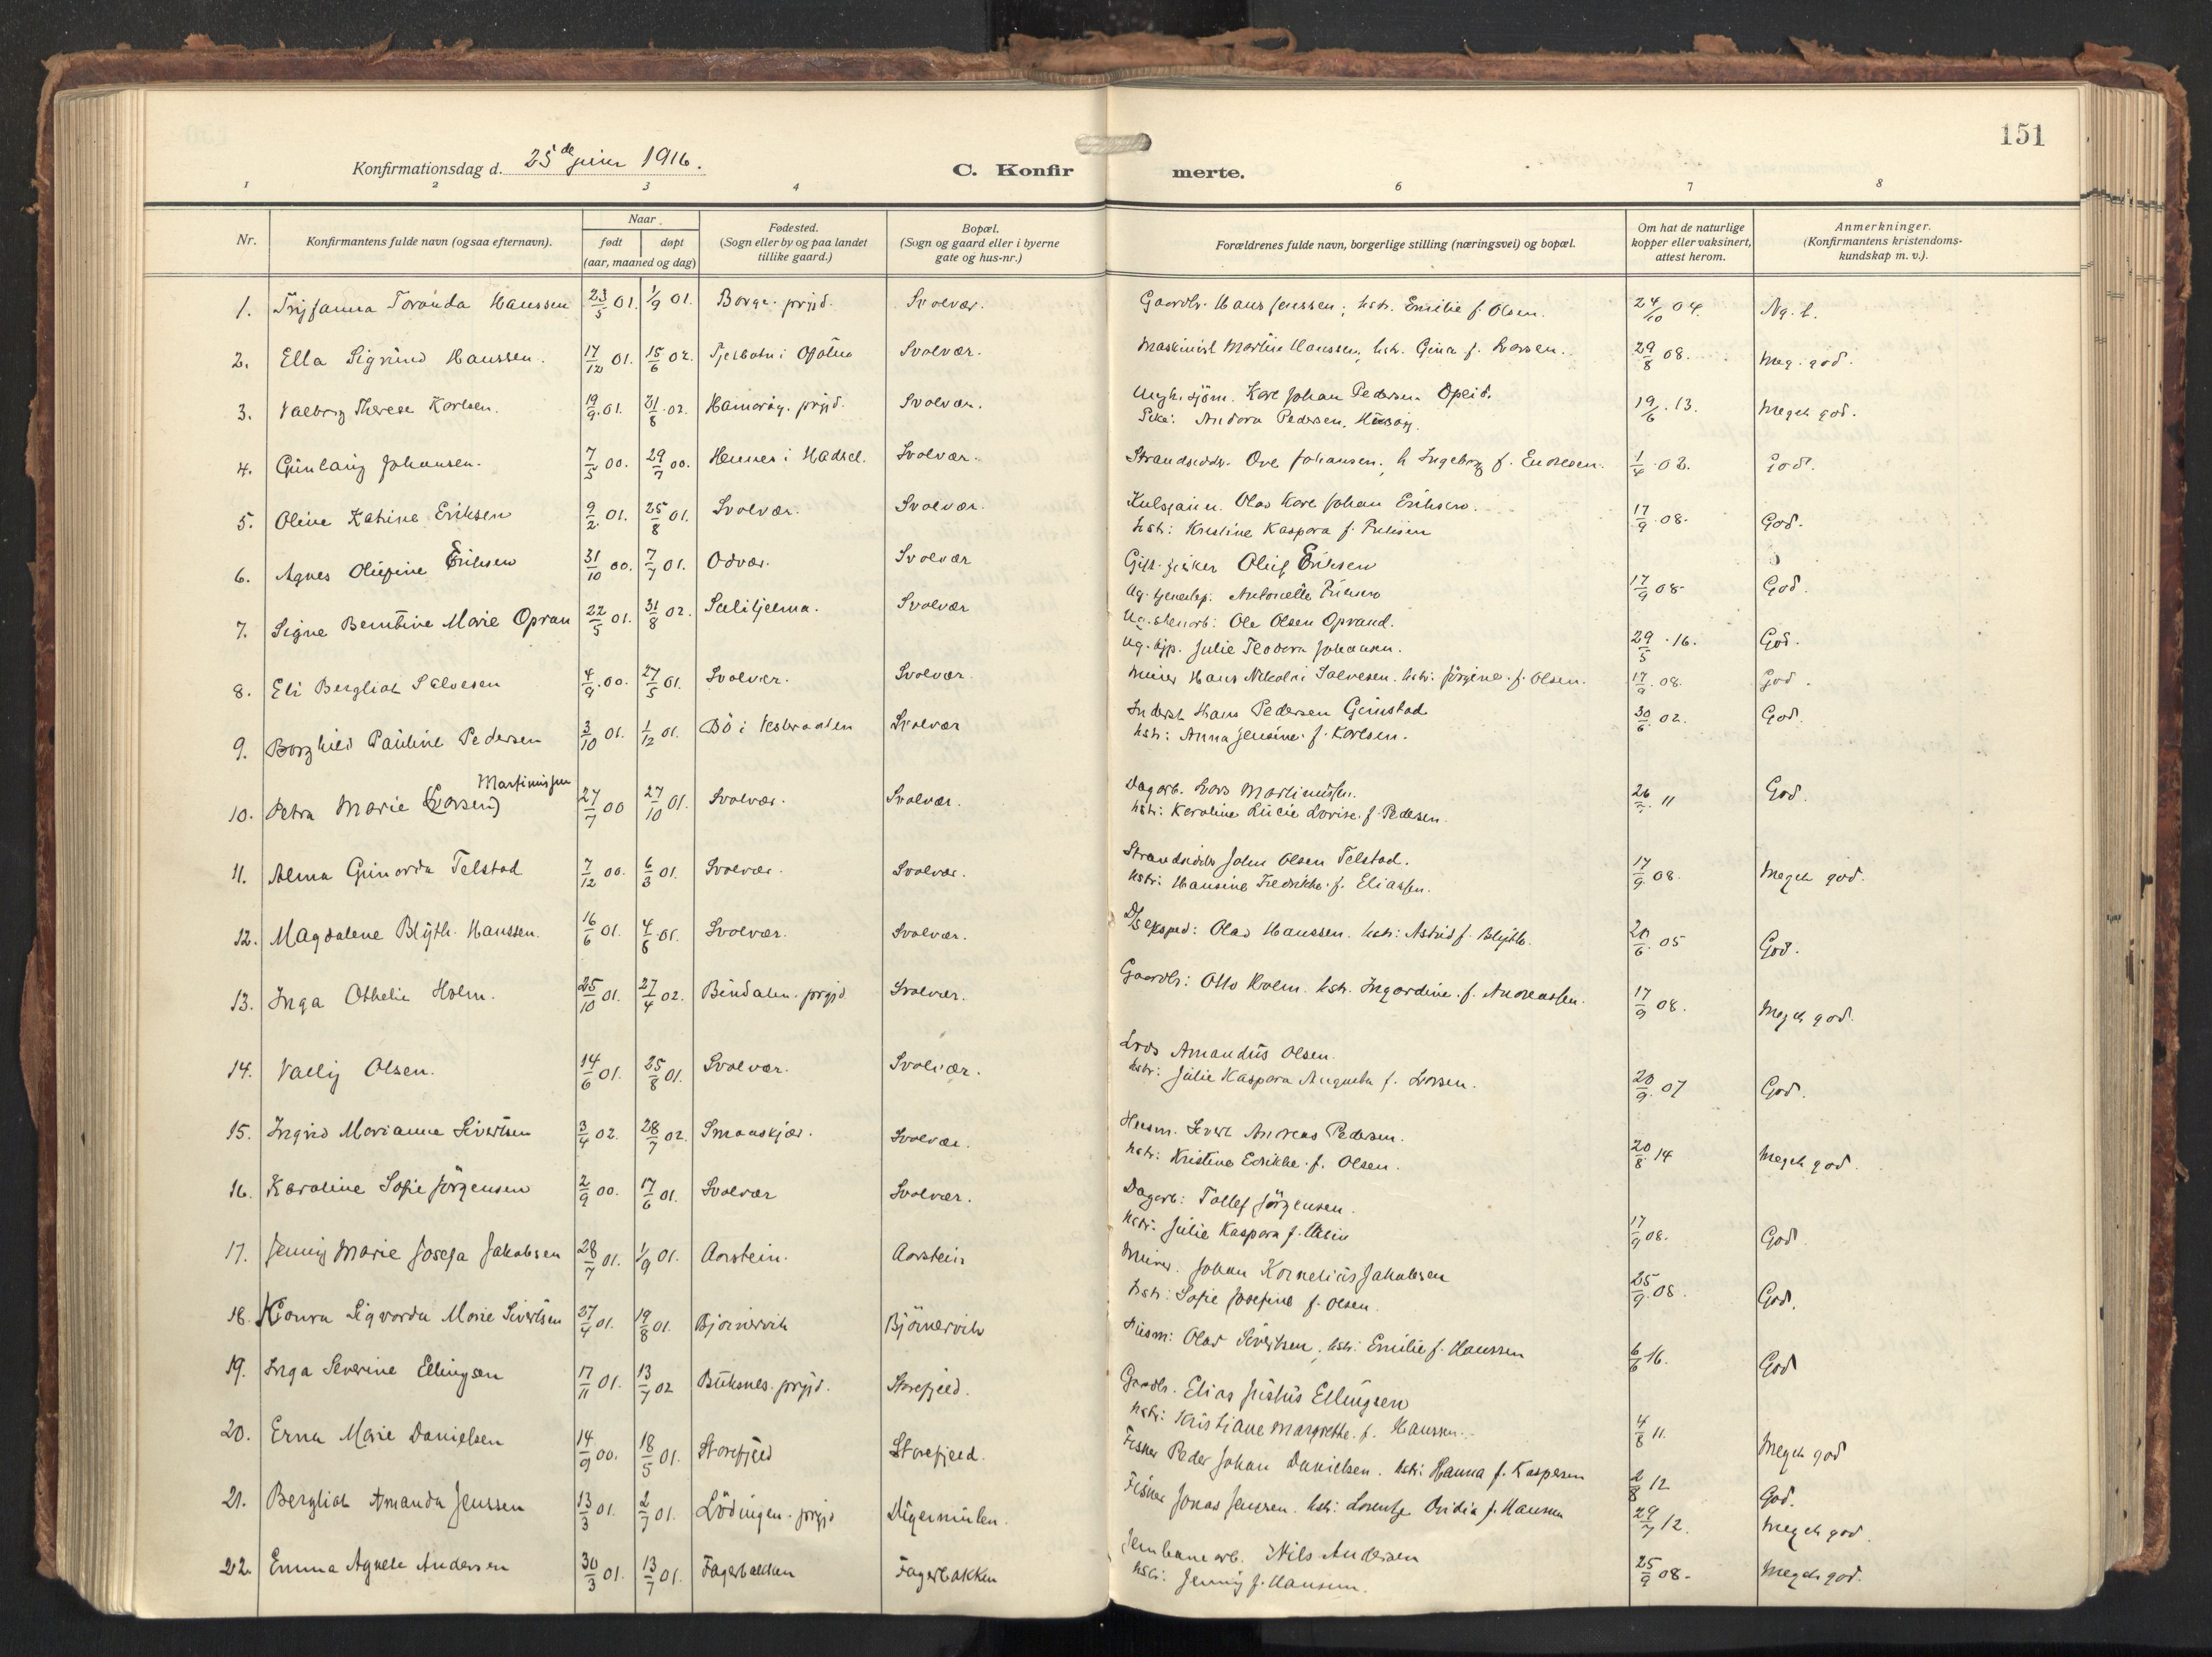 151
Konfirmationsdag d. 25de juni 1916.
C. Konfirmerte.
1 2 3 4 6 7 8
Nr.
Konfirmantens fulde navn (ogsaa efternavn).
Naar
født døpt
(aar, maaned og dag)
Fødested.
(Sogn eller by og paa landet
tillike gaard.)
Bopæl.
(Sogn og gaard eller i byerne
gate og hus-nr.)
Forældrenes fulde navn, borgerlige stilling (næringsvei) og bopæl.
Om hat de naturlige
kopper eller vaksinert,
attest herom.
Anmerkninger.
(Konfirmantens kristendoms-
kundskap m. v.).
1. Toranda Hanssen 23/5 01. 1/9 01. Borge. prgjd. Svolvær. Gaardbr. Hans Jenssen; hstr. Emilie f. Olsen. 24/10 04. Ng. t.
2. Ella Sigrund Hanssen. 17/12 01. 15/6 02. i Ofoten Svolvær. Maskinist Martin Hanssen, hstr. Gina f. Larsen. 29/8 08. Meg. god.
3. Valborg Therese Karlsen. 19/9 01. 31/8 02. Hamarøy. prgjd. Svolvær. Ungk. sjøm. Karl Johan Pedersen Opeid. 19/6 13. Meget god.
Pike: Andora Pedersen,
4. Gunlaug Johansen. 7/5 00. 29/7 00. Hennes i Hadsel. Svolvær. Strandsidder. Ove Johansen, h Ingeborg f. Endresen. 1/4 02. God.
5. Oline Katrine Eriksen 9/2 01. 25/8 01. Svolvær. Svolvær. Olav Karl Johan Eriksen. 17/9 08. God.
hstr: Kristine Kaspara f.
6. Agnes Oliefine Eriksen 31/10 00. 7/7 01. Odvær. Svolvær Gift fisker Oluf Eriksen
Ug. Antonette 17/9 08. God.
7. Signe Berntine Marie Opran 22/5 01. 31/8 02. Sulitjelma. Svolvær Ug. Ole Olsen Oprand.
Ug. Julie Teodora Johansen. 29/5 16. God.
8. Eli Bergliot Salvesen 4/9 00. 27/5 01. Svolvær. Svolvær. Murer Hans Nikolai Salvesen. hstr: Jørgine f. Olsen. 17/9 08. God.
9. Borghild Pauline Pedersen 3/10 01. 1/12 01. Bö i Vesteraalen Svolvær Inderst Hans Pedersen Grinstad 30/6 02. God.
hstr: Anna Jensine f. Karlsen.
10. Petra Marie (Larsen) Martinussen 27/7 00 27/10 01. Svolvær. Svolvær. Dagarb. Lars Martinussen. 26 11 God.
hstr: Karoline Lucie Lovise f. Pedersen.
11. Alma Gunarda Telstad 7/12 00. 6/3 01. Svolvær. Svolvær. Strandsidder John Olsen Telstad. 17/9 08. Meget god.
hstr: Hansine Fredrikke f. Eliassen.
12. Magdalene Blyth. Hanssen. 16/6 01. 4/8 01. Svolvær. Svolvær. D/S eksped: Olav Hanssen. hstr: Astrid f. Blyth. 20/6 05 God.
13. Inga Othelie Holm. 25/10 01. 27/4 02. Bindalen. prgjd Svolvær. Gaardbr: Otto Holm. hstr. Ingardine f. Andreassen. 17/9 08. Meget god.
14. Vally Olsen. 14/6 01. 25/8 01. Svolvær. Svolvær. Lods Amandus Olsen. 20/9 07 God.
hstr: Julie Kaspara f. Larsen.
15. Ingrid Marianne Sivertsen 3/4 02. 28/7 02. Smaaskjær. Svolvær. Husm. Sivert Andreas Pedersen. 20/8 14 Meget god.
hstr: Kristine Edrikke f. Olsen.
16. Karoline Sofie Jörgensen 2/9 00. 17/6 01. Svolvær Svolvær. Dagarb: Tollef Jörgensen. 17/9 08. God
hstr: Julie Kaspara f.
17. Jenny Marie Josefa Jakobsen 28/7 01. 1/9 01. Aarstein. Aarstein Murer. Johan Kornelius Jakobsen 25/9 08. God.
hstr: Sofie Josefine f. Olsen.
18. Konra Sigvarda Marie Sivertsen 27/4 01. 19/8 01. Bjørnervik Björnervik Husm: Olav Sivertsen, hstr: Emilie f. Hanssen 6/6 16. God
19. Inga Severine Ellingsen 17/11 01. 13/7 02 Buksnes. prgjd. Storefjeld. Gaardbr. Elias Justus Ellingsen 4/8 11. Meget god
hstr: Kristiane Margrethe f. Hanssen.
20. Erna Marie Danielsen 14/9 00. 18/5 01. Storefjeld Storefjeld. Fisker Peder Johan Danielsen. hstr: Hanna f. Kaspersen 2/8 12 God.
21. Bergliot Amanda Jenssen 13/3 01. 2/7 01. Lödingen. prgjd Digermulen. Fisker Jonas Jenssen. hstr: Lorentze Ovidia f. Hansen 29/7 12. Meget god.
22. Emma Agnete Andersen 30/3 01. 13/7 01. Fagerbakken Fagerbakken Jernbanearb. Nils Andersen 25/9 08. Meget god.
hstr: Jenny f. Hansen.